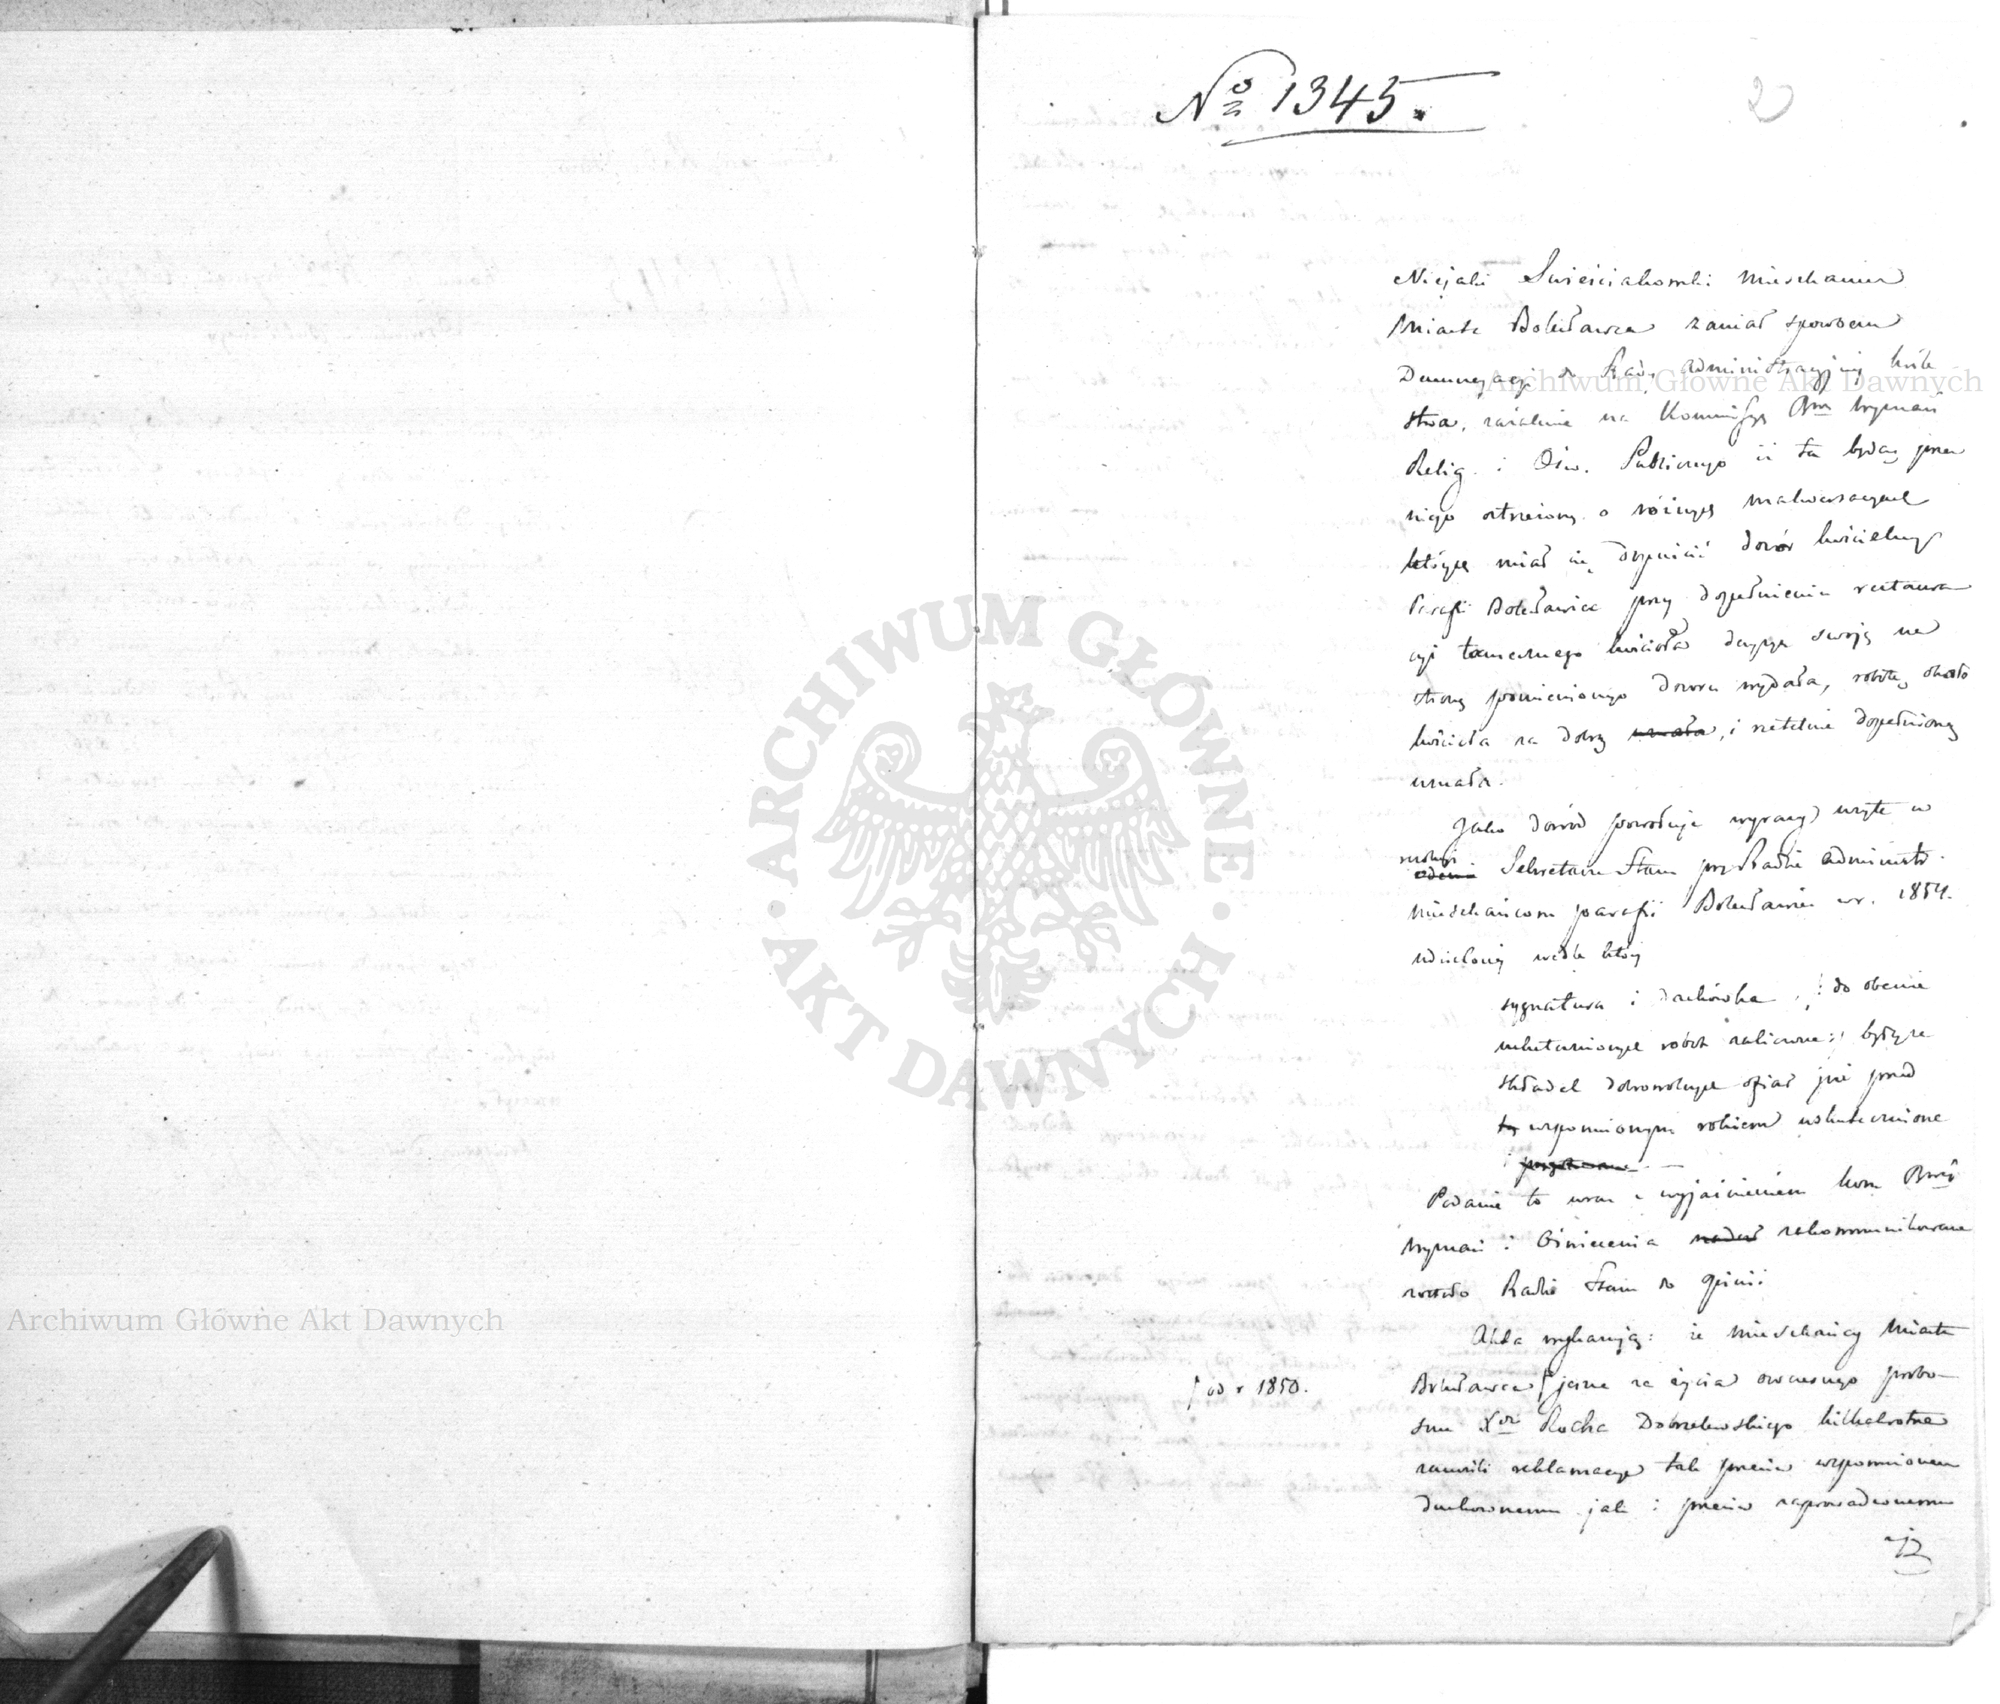 No 1345.
2
Niejaki Swieściakowski Mieszkaniec
Miasta Bolesławca zaniósł sposobem
Denuncyacji do Rady Administracyjnej Króle
stwa, zażalenie na Kommissyę Rzą Wyznań
Relig. i Ośw. Publicznego iż ta będąc przez
niego ostrzeżoną o różnych malwersacyach
których miał się dopuścić dozór kościelny
Parafii Bolesławice przy dopełnieniu restaura
cyi tamecznego kościoła decyzyę swoję na
stronę pomienionego dozoru wydała, robotę około
kościoła za dobrą uznała, i rzetelnie dopełnioną
uznała.
Jako dowód powołuje wyrazy użyte w
Sekretarza Stanu przy Radzie Administr.
Mieszkańcom parafii Bolesławice w r. 1854.
udzieloney wedle której
sygnatura i dachówka, : do obecnie
uskutecznionych robót zaliczone : były ze
składek dobrowolnych ofiar już przed
wspomnionym rokiem uskutecznione
i
Podanie to wraz z wyjaśnieniem Kom Rząd
Wyznań i Oświecenia zakommunikowane
zostało Radzie Stanu do opinii
Akta wykazują: że Mieszkańcy Miasta
Bolesławca ʃ jeszcze za życia owczesnego probo-
ʃ od r 1850.
szcza Xdza Rocha Dobrzelewskiego kilkakrotne
zanosili reklamacye tak przeciw wspomnionemu
duchownemu jak i przeciw zaprowadzonemu
Archiwum Główne Akt Dawnych
Archiwum Główne Akt Dawnych
ARCHIWUM GŁÓWNE · AKT DAWNYCH ·